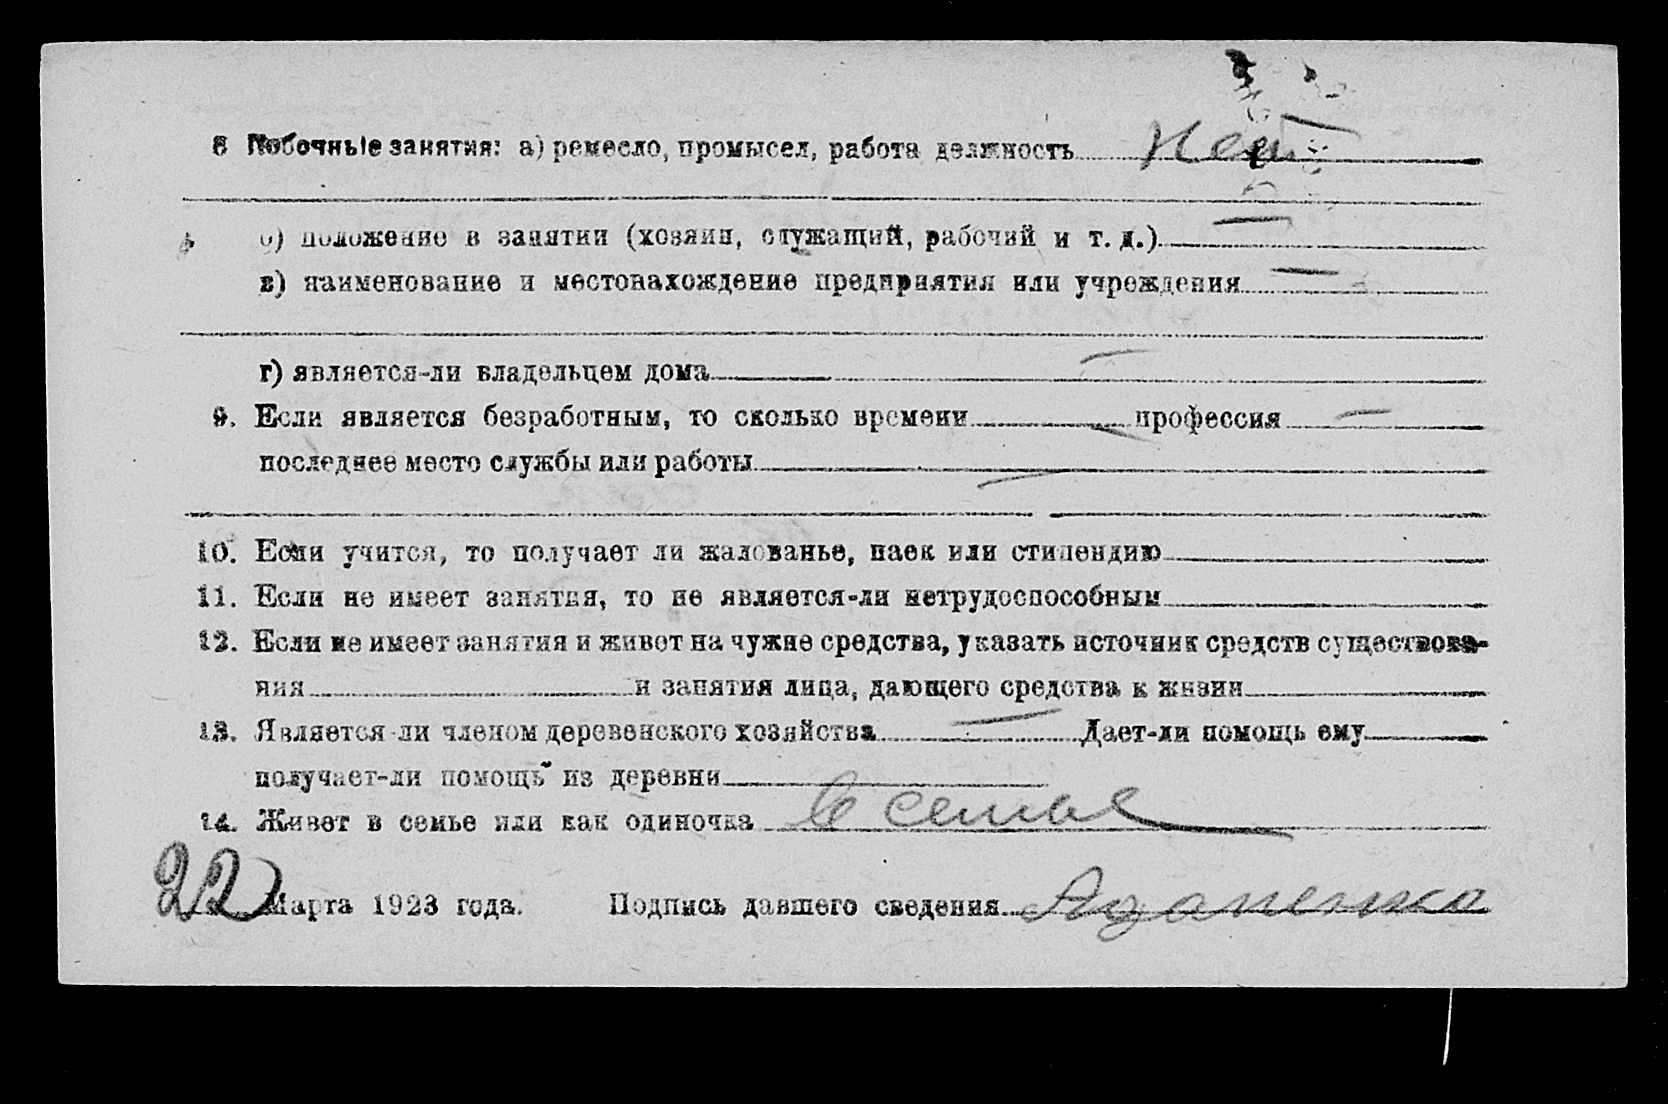 8 Побочные занятия: а) ремесло, промысел, работа должность Нет
б) положение в занятии (хозяин, служащий, рабочий и т. д.) —
в) наименование и местонахождение предприятия или учреждения —
г) является-ли владельцем дома —
9. Если является безработным, то сколько времени — профессия —
последнее место службы или работы —
10. Если учится, то получает ли жалованье, паек или стипендию
11. Если не имеет занятия, то не является-ли нетрудоспособным
12. Если не имеет занятия и живет на чужие средства, указать источник средств существова-
ния и занятия лица, дающего средства к жизни
13. Является-ли членом деревенского хозяйства — Дает-ли помощь ему
получает-ли помощь из деревни
14. Живет в семье или как одиночка в семье
22 Марта 1923 года. Подпись давшего сведения